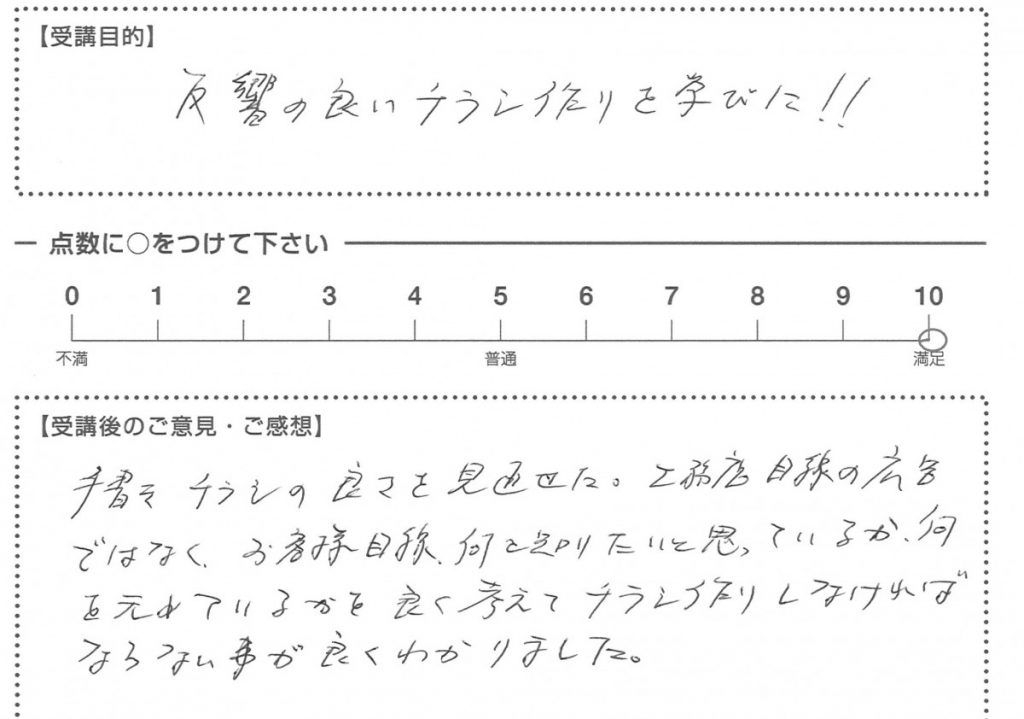 【受講目的】
反響の良いチラシ作りを学びに!!
点数に○をつけて下さい
0 1 2 3 4 5 6 7 8 9 10
不満 普通 満足
【受講後のご意見・ご感想】
手書き チラシの 良さを 見直せた。工務店目線の広告
ではなく、お客様目線、何を知りたいと思っているか、何
を売れているかを 良く考えて チラシ作り しなければ
ならない事が 良くわかりました。